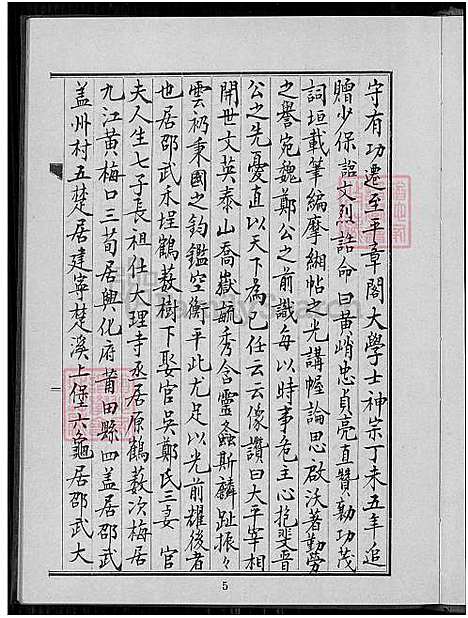 守有功遷至平章閣大學士神宗丁未五年追
贈少保諡文烈誥命曰黃峭忠貞亮直贊勷功茂
詞垣載筆編摩緗帖之光講幄論思啟沃著勤勞
之譽宛魏鄭公之前識每以時事危主心抱斐晉
公之先憂直以天下為己任云云像讚曰大平宰相
開世文英泰山喬嶽毓秀含靈螽斯麟趾振々
雲礽秉國之鈞鑑空衡平此尤足以光前耀後者
也居邵武禾坪鶴薮樹下娶官吳鄭氏三妻官
夫人生七子長祖仕大理寺丞居原鶴薮次梅居
九江黃梅口三荀居興化府莆田縣四盖居邵武
盖州村五楚居建寧楚溪上堡六龜居邵武大
5